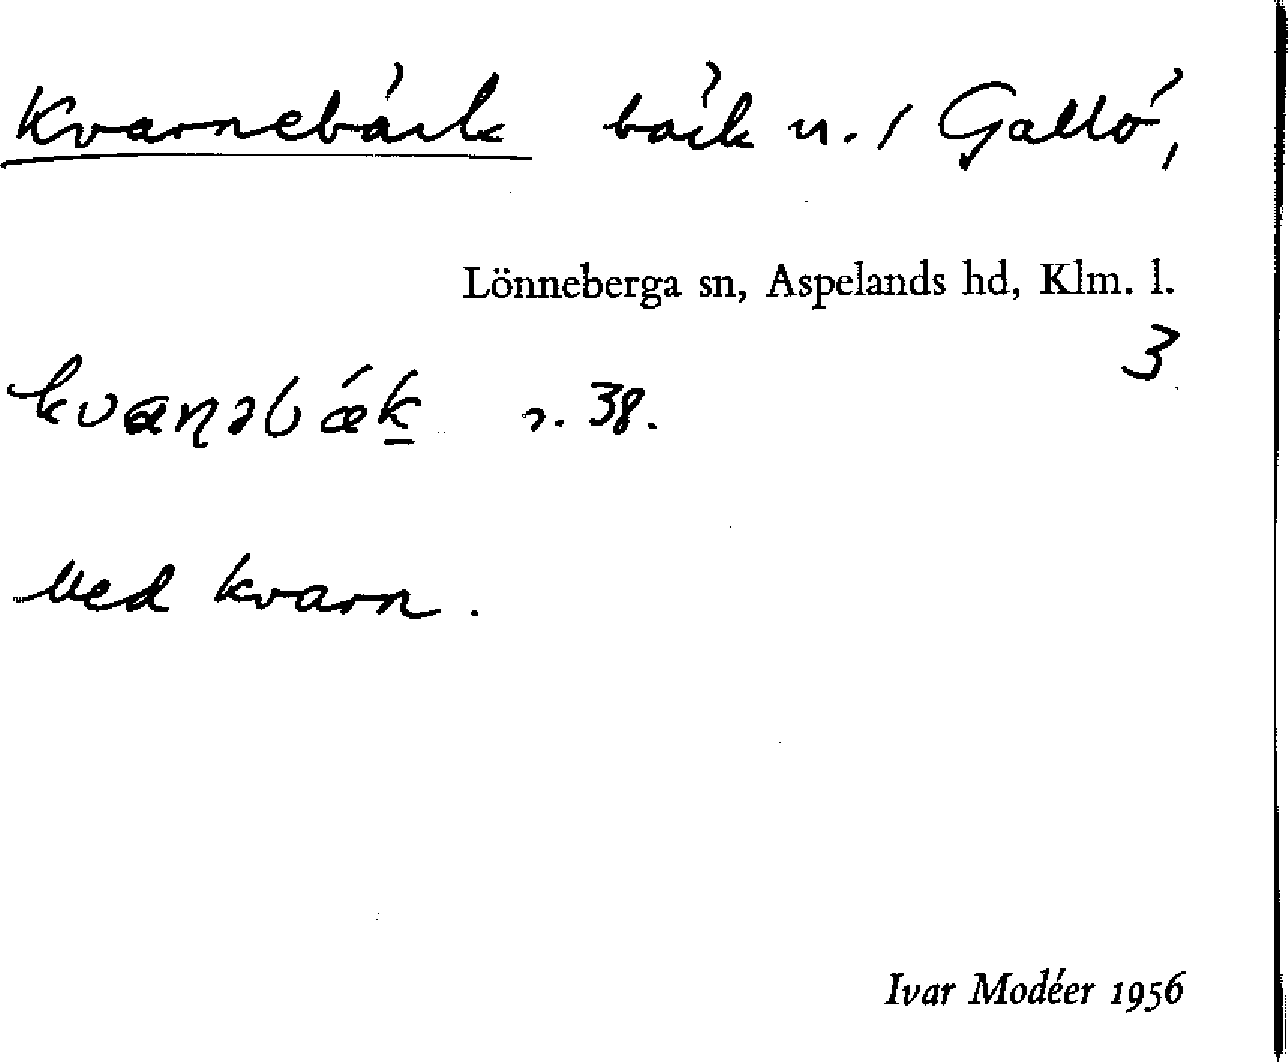 Kvarnebäck bäck u. / Gallö,
Lönneberga sn, Aspelands hd, Klm. l.
3
kvaɳəbǽk 38.
Ved kvarn.
Ivar Modéer 1956